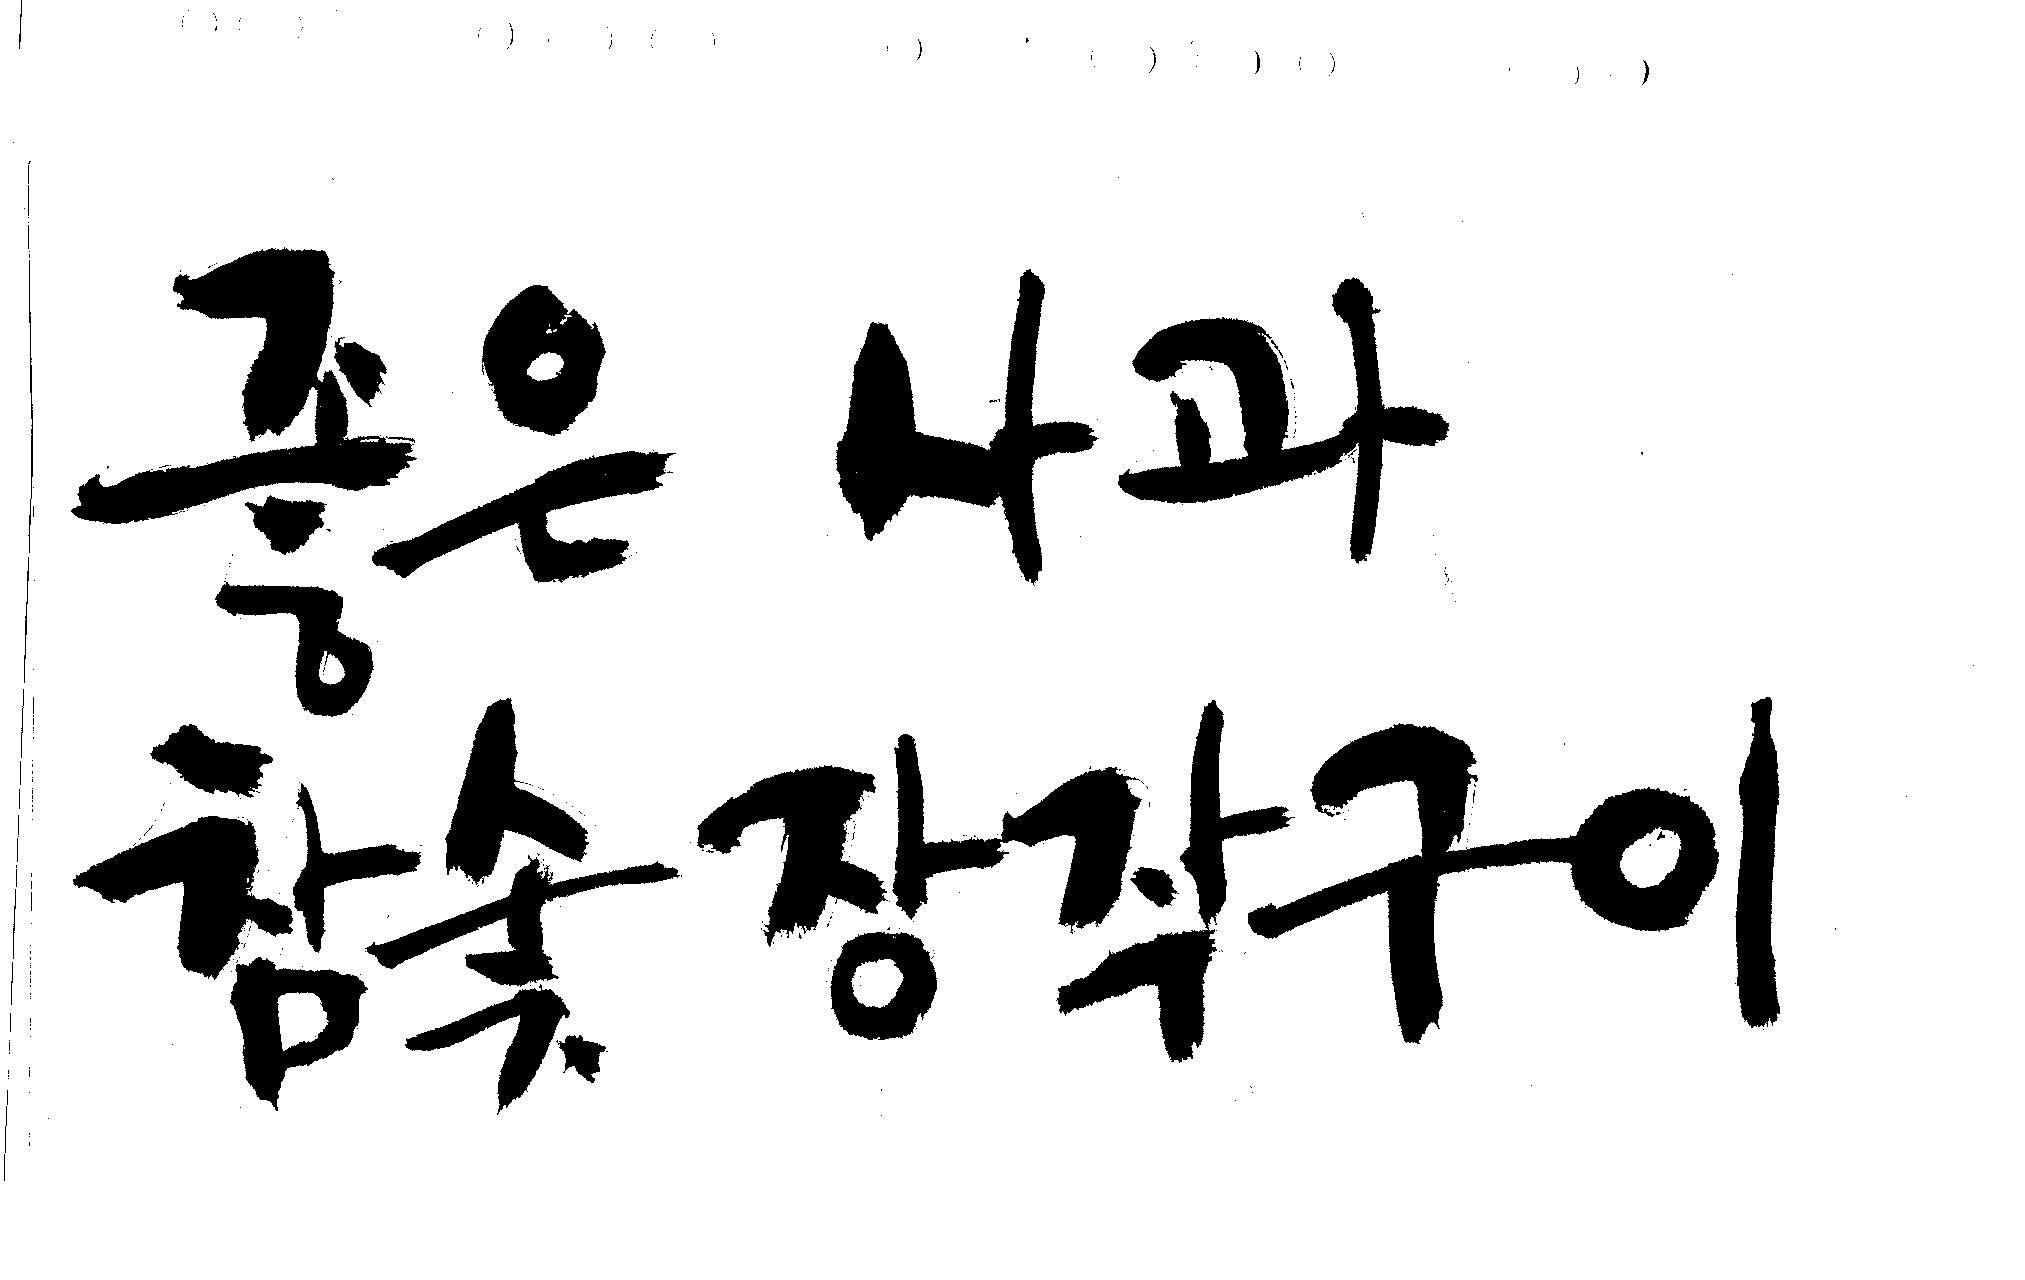 좋은 사과
참숯장작구이